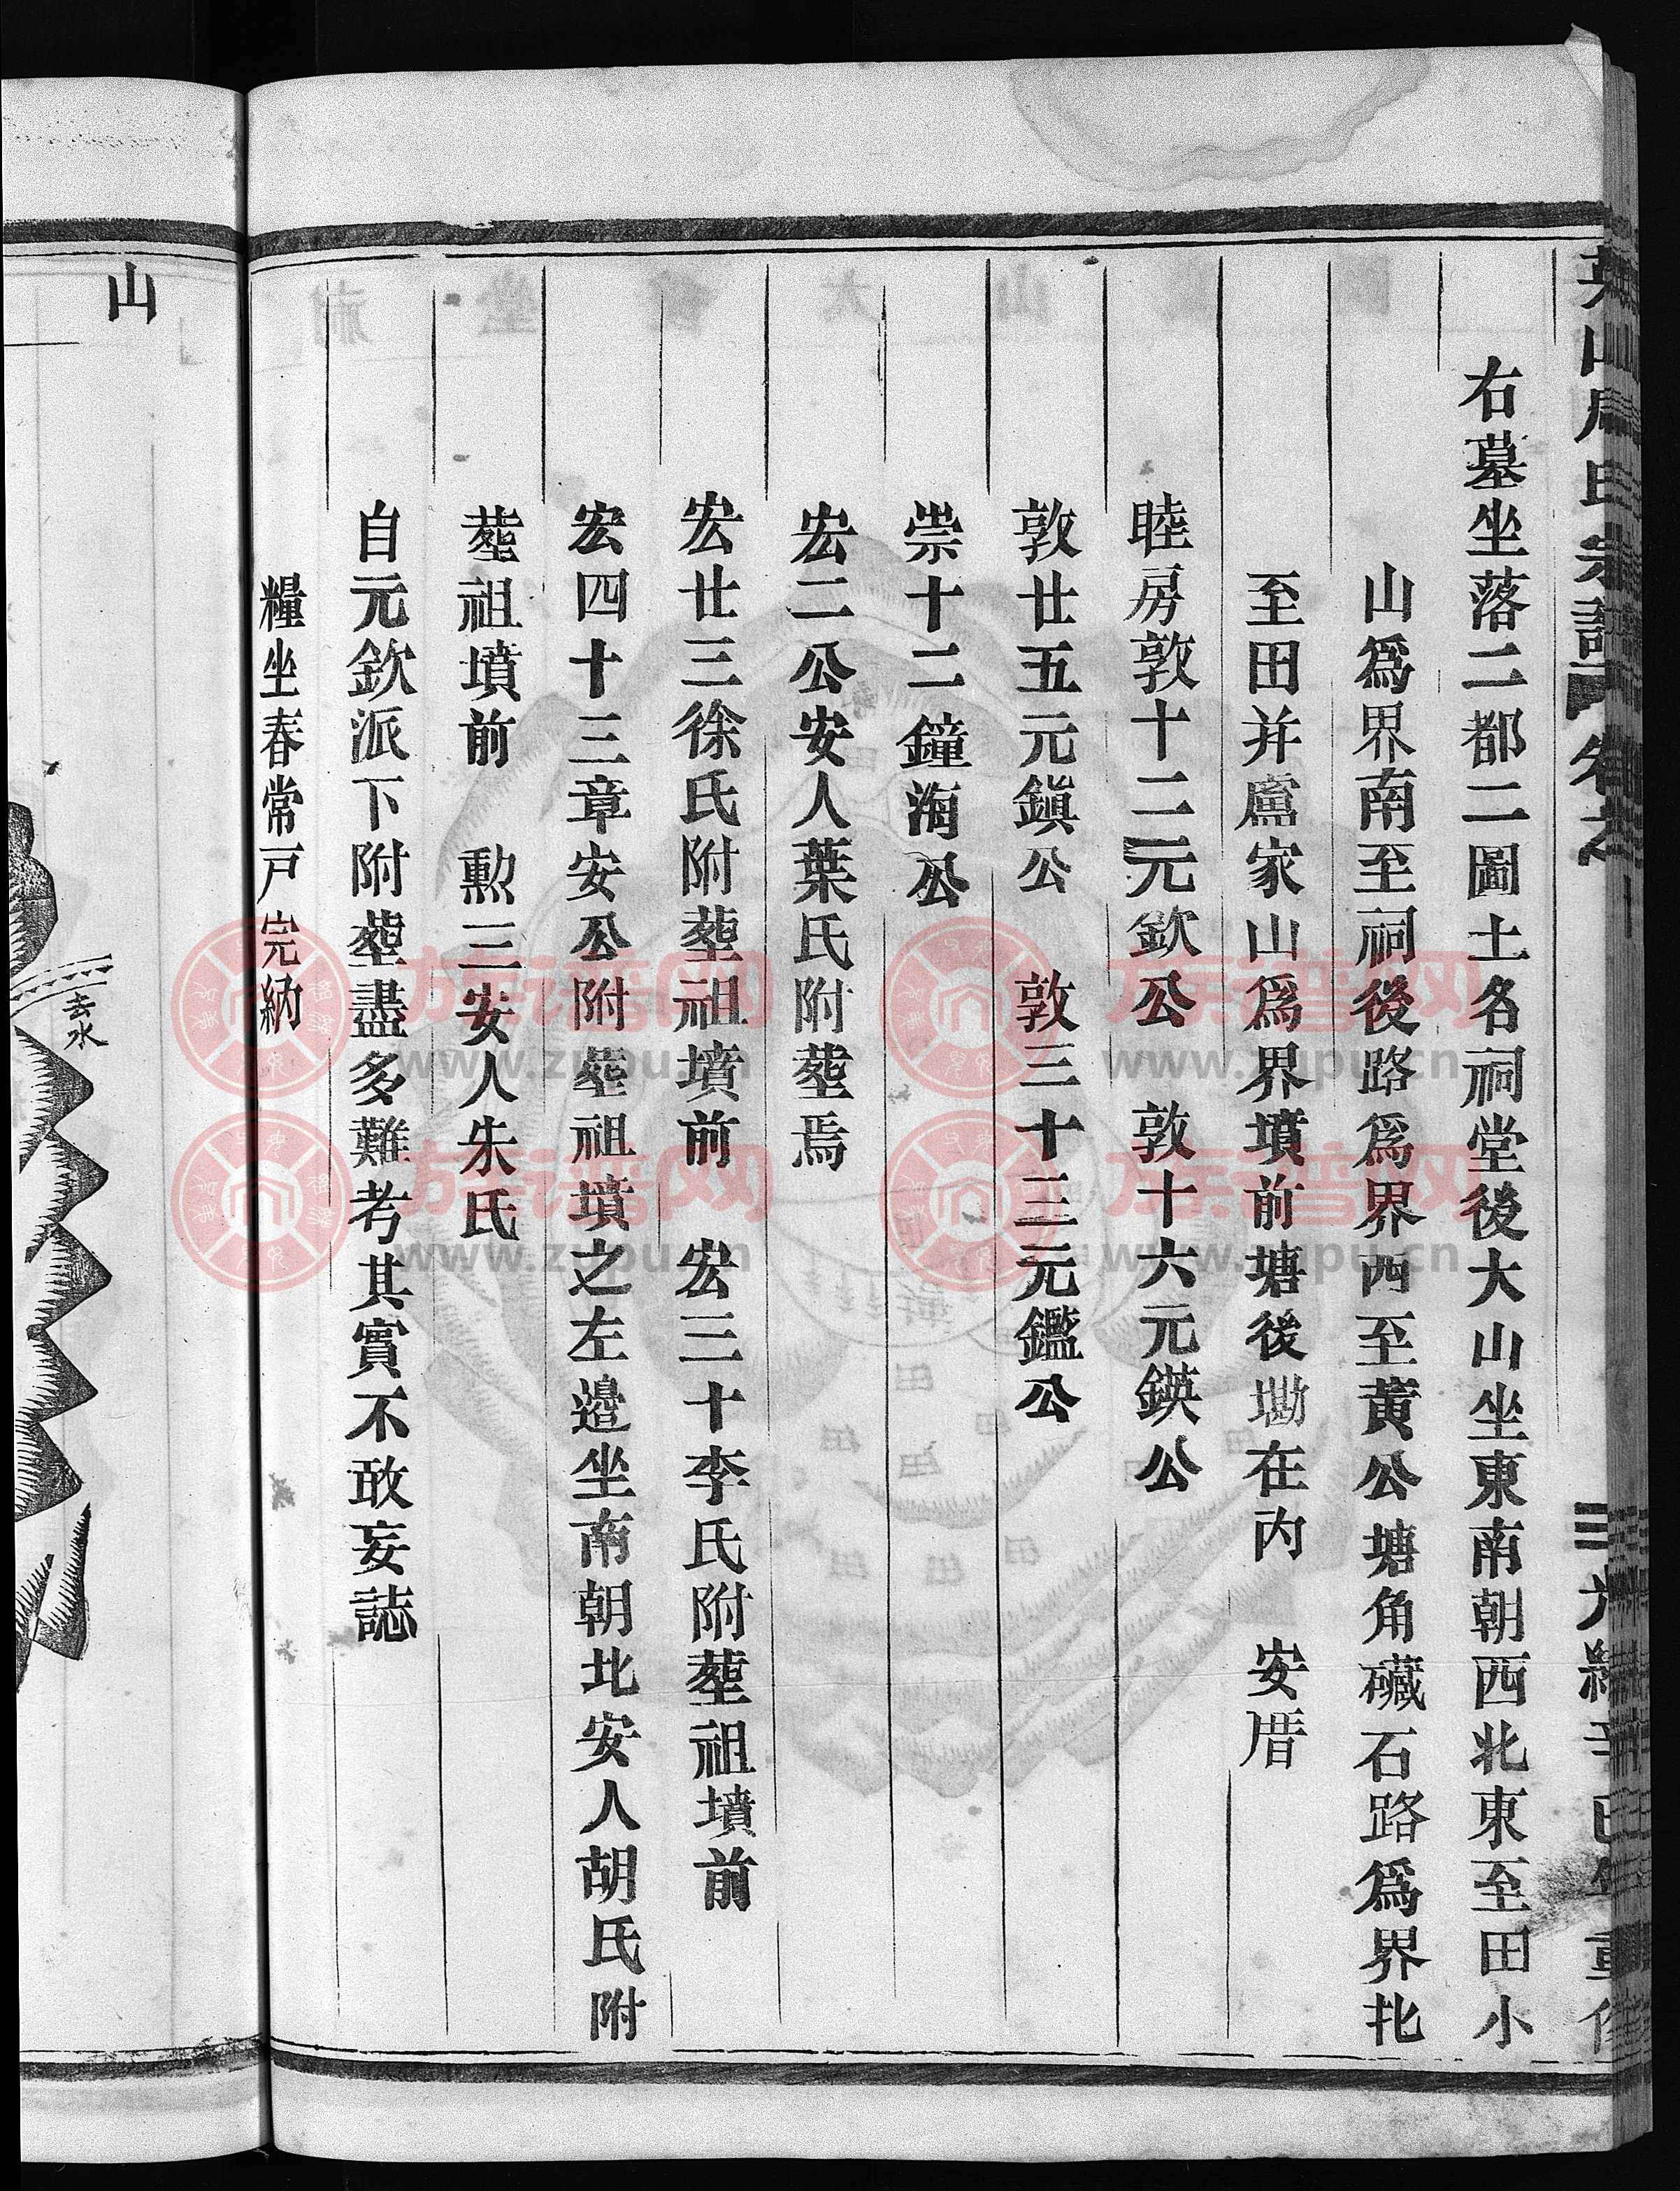 右墓坐落二都二圖土名祠堂後大山坐東南朝西北東至田小
山爲界南至祠後路爲界西至黃公塘角磩石路爲界北
至田并盧家山爲界墳前塘後墈在內　安厝
睦房敦十二元欽公　敦十六元鍈公
敦廿五元鎭公　敦三十三元鑑公
崇十二鐘海公
宏二公安人葉氏附塟焉
宏廿三徐氏附塟祖墳前　宏三十李氏附塟祖墳前
宏四十三章安公附塟祖墳之左邉坐南朝北安人胡氏附
塟祖墳前　勲三安人朱氏
自元欽派下附塟盡多難考其實不敢妄誌
糧坐春常戸完納
山
去水
族谱网
www.zupu.cn
族谱网
www.zupu.cn
族谱网
www.zupu.cn
族谱网
www.zupu.cn